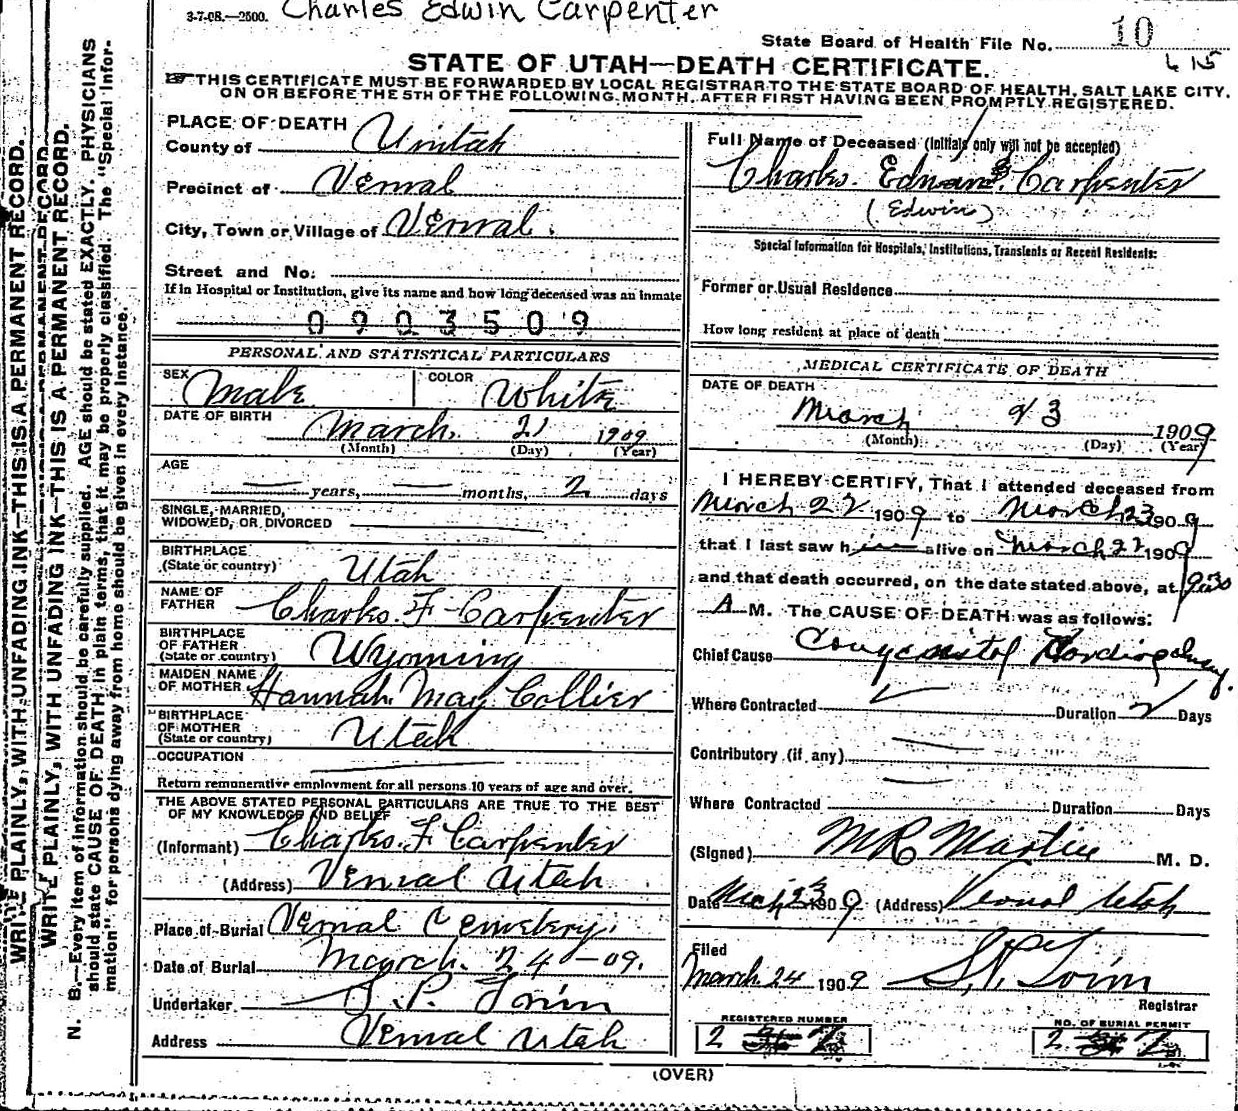 3-7-08.—2500. Charles Edwin Carpenter
State Board of Health File No. 10
415
STATE OF UTAH—DEATH CERTIFICATE.
THIS CERTIFICATE MUST BE FORWARDED BY LOCAL REGISTRAR TO THE STATE BOARD OF HEALTH, SALT LAKE CITY,
ON OR BEFORE THE 5TH OF THE FOLLOWING MONTH, AFTER FIRST HAVING BEEN PROMPTLY REGISTERED.
PLACE OF DEATH
County of Uintah
Precinct of Vernal
City, Town or Village of Vernal
Street and No.
If in Hospital or Institution, give its name and how long deceased was an inmate
0903509
PERSONAL AND STATISTICAL PARTICULARS
SEX Male COLOR White
DATE OF BIRTH March 21 1909
(Month) (Day) (Year)
AGE
— years, — months, 2 days
SINGLE, MARRIED,
WIDOWED, OR DIVORCED
BIRTHPLACE
(State or country) Utah
NAME OF
FATHER Charles F Carpenter
BIRTHPLACE
OF FATHER
(State or country) Wyoming
MAIDEN NAME
OF MOTHER Hannah May Collier
BIRTHPLACE
OF MOTHER
(State or country) Utah
OCCUPATION
Return remunerative employment for all persons 10 years of age and over.
THE ABOVE STATED PERSONAL PARTICULARS ARE TRUE TO THE BEST
OF MY KNOWLEDGE AND BELIEF
(Informant) Charles F Carpenter
(Address) Vernal Utah
Place of Burial Vernal Cemetery
Date of Burial March 24 -09.
Undertaker S. P.
Address Vernal Utah
Full Name of Deceased (Initials only will not be accepted)
Charles Carpenter
(Edwin)
Special Information for Hospitals, Institutions, Transients or Recent Residents:
Former or Usual Residence
How long resident at place of death
MEDICAL CERTIFICATE OF DEATH
DATE OF DEATH
March 23 1909
(Month) (Day) (Year)
I HEREBY CERTIFY, That I attended deceased from
March 22 1909 to March 23 1909
that I last saw him alive on March 22 1909
and that death occurred, on the date stated above, at 9:30
A M. The CAUSE OF DEATH was as follows:
Chief Cause
Where Contracted Duration 2 Days
Contributory (if any)
Where Contracted Duration Days
(Signed) M R Martin M. D.
Date Mch 23 1909 (Address) Vernal Utah
Filed
March 24 1909 S. P.
Registrar
REGISTERED NUMBER
2
NO. OF BURIAL PERMIT
2
(OVER)
WRITE PLAINLY, WITH UNFADING INK—THIS IS A PERMANENT RECORD.
WRITE PLAINLY, WITH UNFADING INK—THIS IS A PERMANENT RECORD.
N. B.—Every item of information should be carefully supplied. AGE should be stated EXACTLY. PHYSICIANS
should state CAUSE OF DEATH in plain terms, that it may be properly classified. The "Special Infor-
mation" for persons dying away from home should be given in every instance.